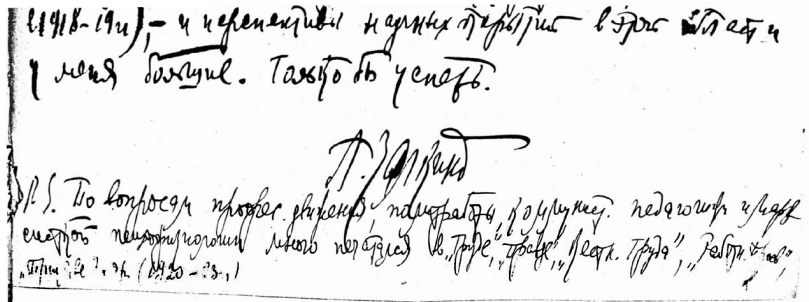 (1918-19 г.), – и перспективы научных открытий в этой области
у меня большие. Только бы успеть.
А. Залкинд
P.S. По вопросам професс. движения, политработы, коммунист. педагогики и марк
систской много печатался в „Труде“, „Правде“, „Вестн. Труда“, „Работн.
(1920-23 г.)